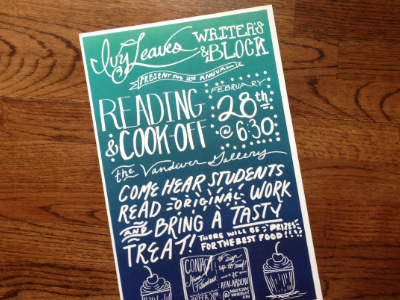 Ivy Leaves
WRITER'S
& BLOCK
PRESENT OUR 2nd ANNUAL
READING
& COOK-OFF
FEBRUARY
28th
@ 6:30
the Vandiver Gallery
COME HEAR STUDENTS
READ ORIGINAL WORK
AND BRING A TASTY
TREAT! THERE WILL BE PRIZES
FOR THE BEST FOOD!!!
CONTACT